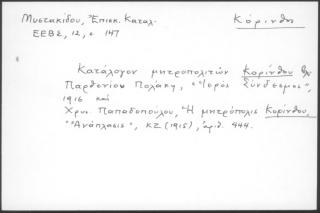 Μυστακίδου, Ἐπισκ. Καταλ. Κόρινθος
ΕΕΒΣ, 12, σ 147
Κατάλογον μητροπολιτῶν Κορίνθου
Παρθενίου Πολάκη, "Ἱερὸς Σύνδεσμος",
1916 καὶ
Χρυσ. Παπαδοπούλου, Ἡ μητρόπολις Κορίνθου,
"Ἀνάπλασις", ΚΖ (1915), ἀριθ. 444.